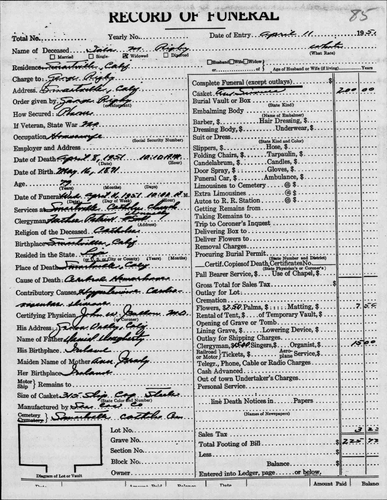 RECORD OF FUNERAL
85
Total No. Yearly No. Date of Entry April 11 1951
Name of Deceased Julia M. Rigby White
Married Single Widowed Divorced Husband Widow Age of Husband or Wife (if living) (What Race)
Residence Smartville, Calif
Charge to George Rigby
Address Smartville, Calif
Order given by George Rigby
How Secured Phone
If Veteran, State War
Occupation Housewife (Social Security Number)
Employer and Address
Date of Death April 8, 1951 10:10 P.M.
Date of Birth May 16, 1871
Age 79 (Years) (Months) (Days)
Date of Funeral Wed April 11, 1951 10:00 A.M.
Services at Smartville Catholic Church
Clergyman Father Patrick
Religion of the Deceased Catholic
Birthplace Smartville, Calif
Resided in the State Life (Years) (Months)
Place of Death Smartville, Calif
Cause of Death Cerebral Hemorrhage
Contributory Causes Hypertensive Cardio
vascular disease
Certifying Physician John W. M.D.
His Address Grass Valley, Calif
Name of Father Daniel Dougherty
His Birthplace Ireland
Maiden Name of Mother Rose
Her Birthplace Ireland
Motor Ship Remains to
Size of Casket (State Color and Number)
Manufactured by
Cemetery Crematory Smartville Catholic Cem
Lot No.
Grave No.
Section No.
Block No.
Owner
Diagram of Lot or Vault
Complete Funeral (except outlays) 200 00
Casket
Burial Vault or Box (State Kind)
Embalming Body (State Kind)
Barber, Hair Dressing,
Dressing Body, Underwear,
Suit or Dress (State Kind and Color)
Slippers, Hose,
Folding Chairs, Tarpaulin,
Candelabrum, Candles,
Door Spray, Gloves,
Funeral Car, Ambulance
Limousines to Cemetery @ $
Extra Limousines @ $
Autos to R. R. Station @ $
Getting Remains from
Taking Remains to
Trip to Coroner's Inquest
Delivering Box to
Deliver Flowers to
Removal Charges
Procuring Burial Permit (State Number and District)
Certif. Copies of Death Certificates No. (State Physician's or Coroner's)
Pall Bearer Service, Use of Chapel,
Gross Total for Sales Tax
Outlay for Lot
Cremation
Flowers $7.50 Palms, Matting, $ 7 50
Rental of Tent, of Temporary Vault, $
Opening of Grave or Tomb
Lining Grave, Lowering Device, $
Outlay for Shipping Charges
Clergyman, Singers, Organist, $ 15 00
Railroad Motor Tickets, Aeroplane Service, $
Telegr., Phone, Cable or Radio Charges
Cash Advanced
Out of town Undertaker's Charges
Personal Service
line Death Notices in Papers
(Names of Newspapers)
Sales Tax 3
Total Footing of Bill 225
Less
Balance
Entered into Ledger, page or below.
Amount Paid Balance Amount Paid Balance